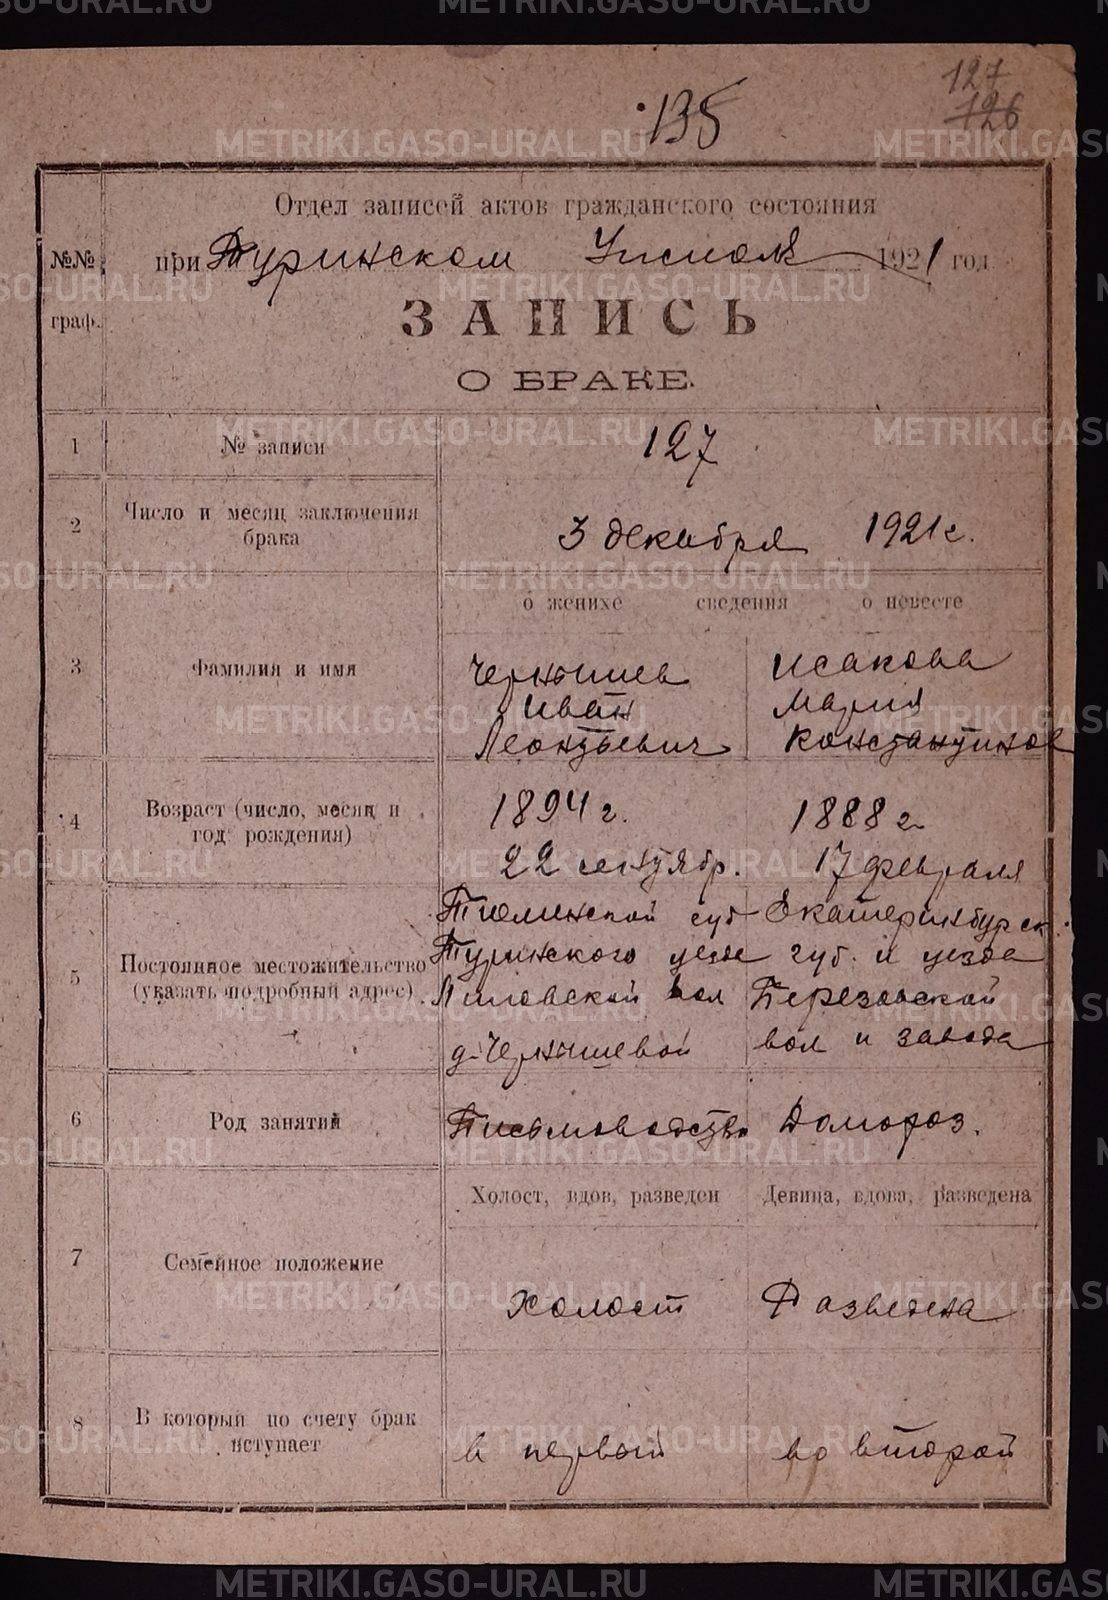 127
126
135
Отдел записей актов гражданского состояния
№№ граф.
при Туринском Уисполк 1921 год
ЗАПИСЬ
О БРАКЕ.
1 № записи 127
2 Число и месяц заключения брака 3 декабря 1921 г.
о женихе сведения о невесте
3 Фамилия и имя
Чернышев Исакова
Иван Мария
Леонтьевич Константинов
4 Возраст (число, месяц и год рождения)
1894 г. 1888 г
22 сентябр. 17 февраля
5 Постоянное местожительство (указать подробный адрес)
Тюминской губ Екатеринбурск.
Туринского уезде губ. и уезда
вол Березовской
д. Чернышевой вол и завода
6 Род занятий Письмоводство Домороз.
Холост, вдов, разведен Девица, вдова, разведена
7 Семейное положение Холост Разведена
8 В который по счету брак вступает в первый во второй
METRIKI.GASO-URAL.RU